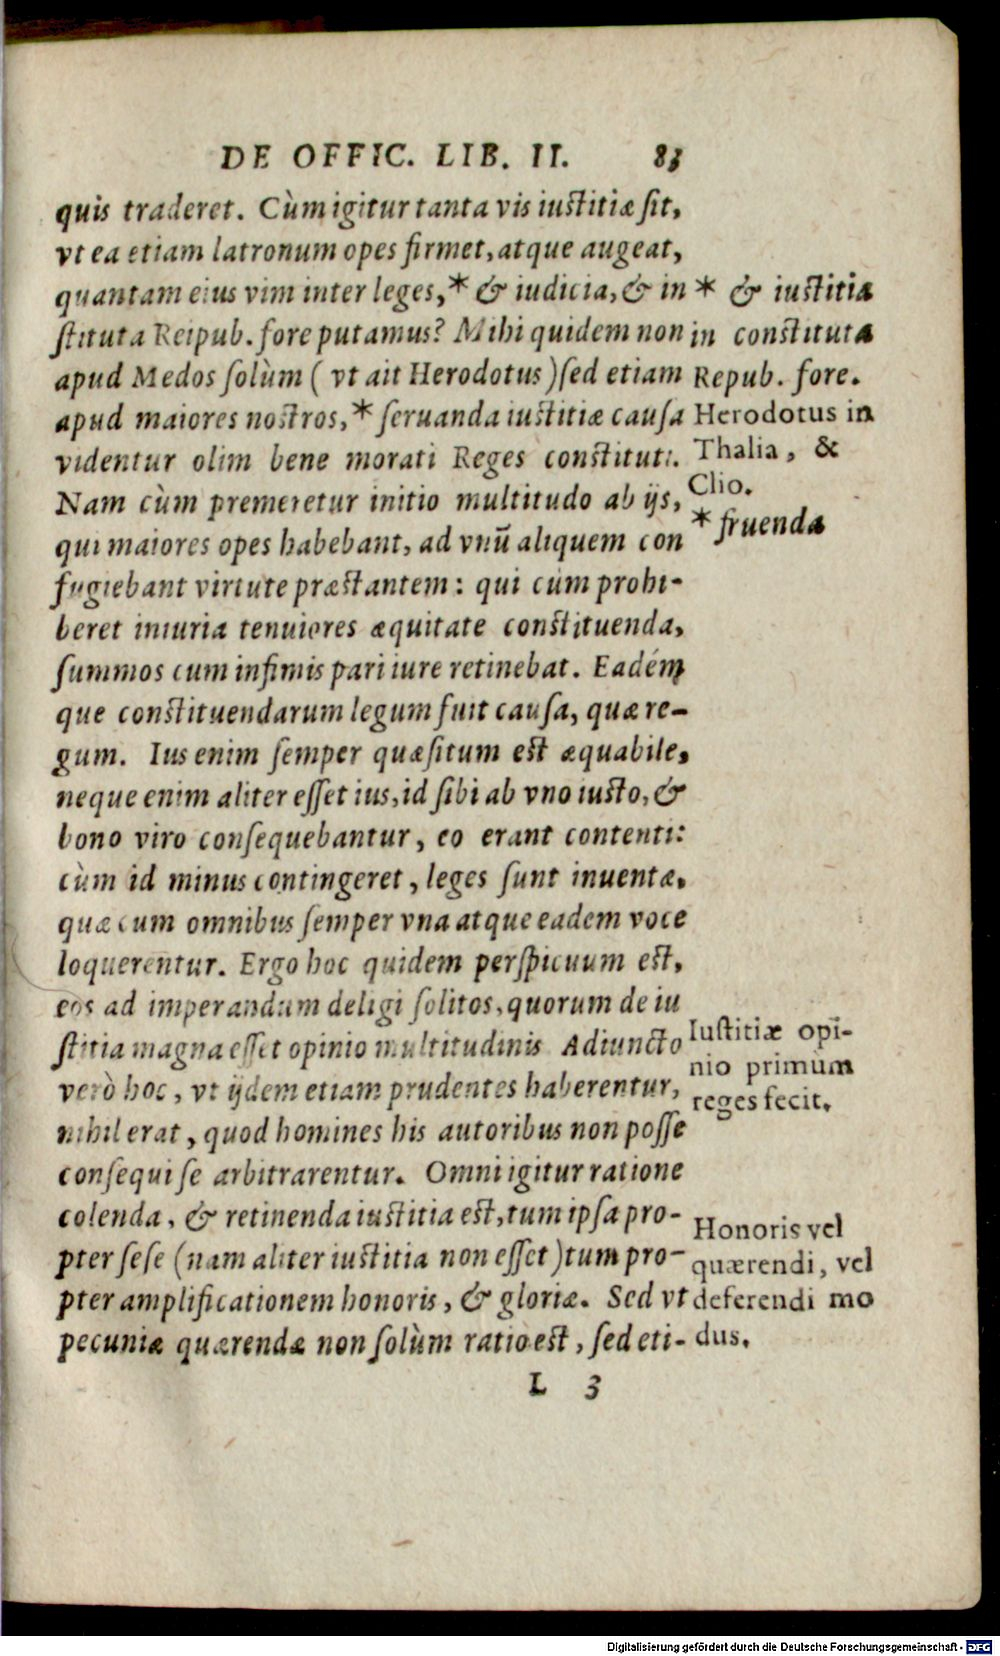 DE OFFIC. LIB. II. 83
quis traderet. Cùm igitur tanta vis iustitiæ sit,
vt ea etiam latronum opes firmet, atque augeat,
quantam eius vim inter leges, * & iudicia, & in
stituta Reipub. fore putamus? Mihi quidem non
apud Medos solùm ( vt ait Herodotus ) sed etiam
apud maiores nostros, * seruanda iustitiæ causa
videntur olim bene morati Reges constituti.
Nam cùm premeretur initio multitudo ab ijs,
qui maiores opes habebant, ad vnũ aliquem con
fugiebant virtute præstantem: qui cùm prohi-
beret iniuria tenuiores æquitate constituenda,
summos cum infimis pari iure retinebat. Eadém
que constituendarum legum fuit causa, quæ re-
gum. Ius enim semper quæsitum est æquabile,
neque enim aliter esset ius, id si bi ab vno iusto, &
bono viro consequebantur, eo erant contenti:
cùm id minus contingeret, leges sunt inuentæ,
quæ cum omnibus semper vna atque eadem voce
loquerentur. Ergo hoc quidem perspicuum est,
eos ad imperandum deligi solitos, quorum de iu
stitia magna esset opinio multitudinis Adiuncto
verò hoc, vt ijdem etiam prudentes haberentur,
nihil erat, quod homines his autoribus non posse
consequi se arbitrarentur. Omni igitur ratione
colenda, & retinenda iustitia est, tum ipsa pro-
pter sese (nam aliter iustitia non esset) tum pro-
pter amplificationem honoris, & gloriæ. Sed vt
pecuniæ quærendæ non solùm ratio est, sed eti-
L 3
* & iustitia
in constituta
Repub. fore.
Herodotus in
Thalia, &
Clio.
* fruenda
Iustitiæ opi-
nio primùm
reges fecit.
Honoris vel
quærendi, vel
deferendi mo
dus.
Digitalisierung gefördert durch die Deutsche Forschungsgemeinschaft - DFG